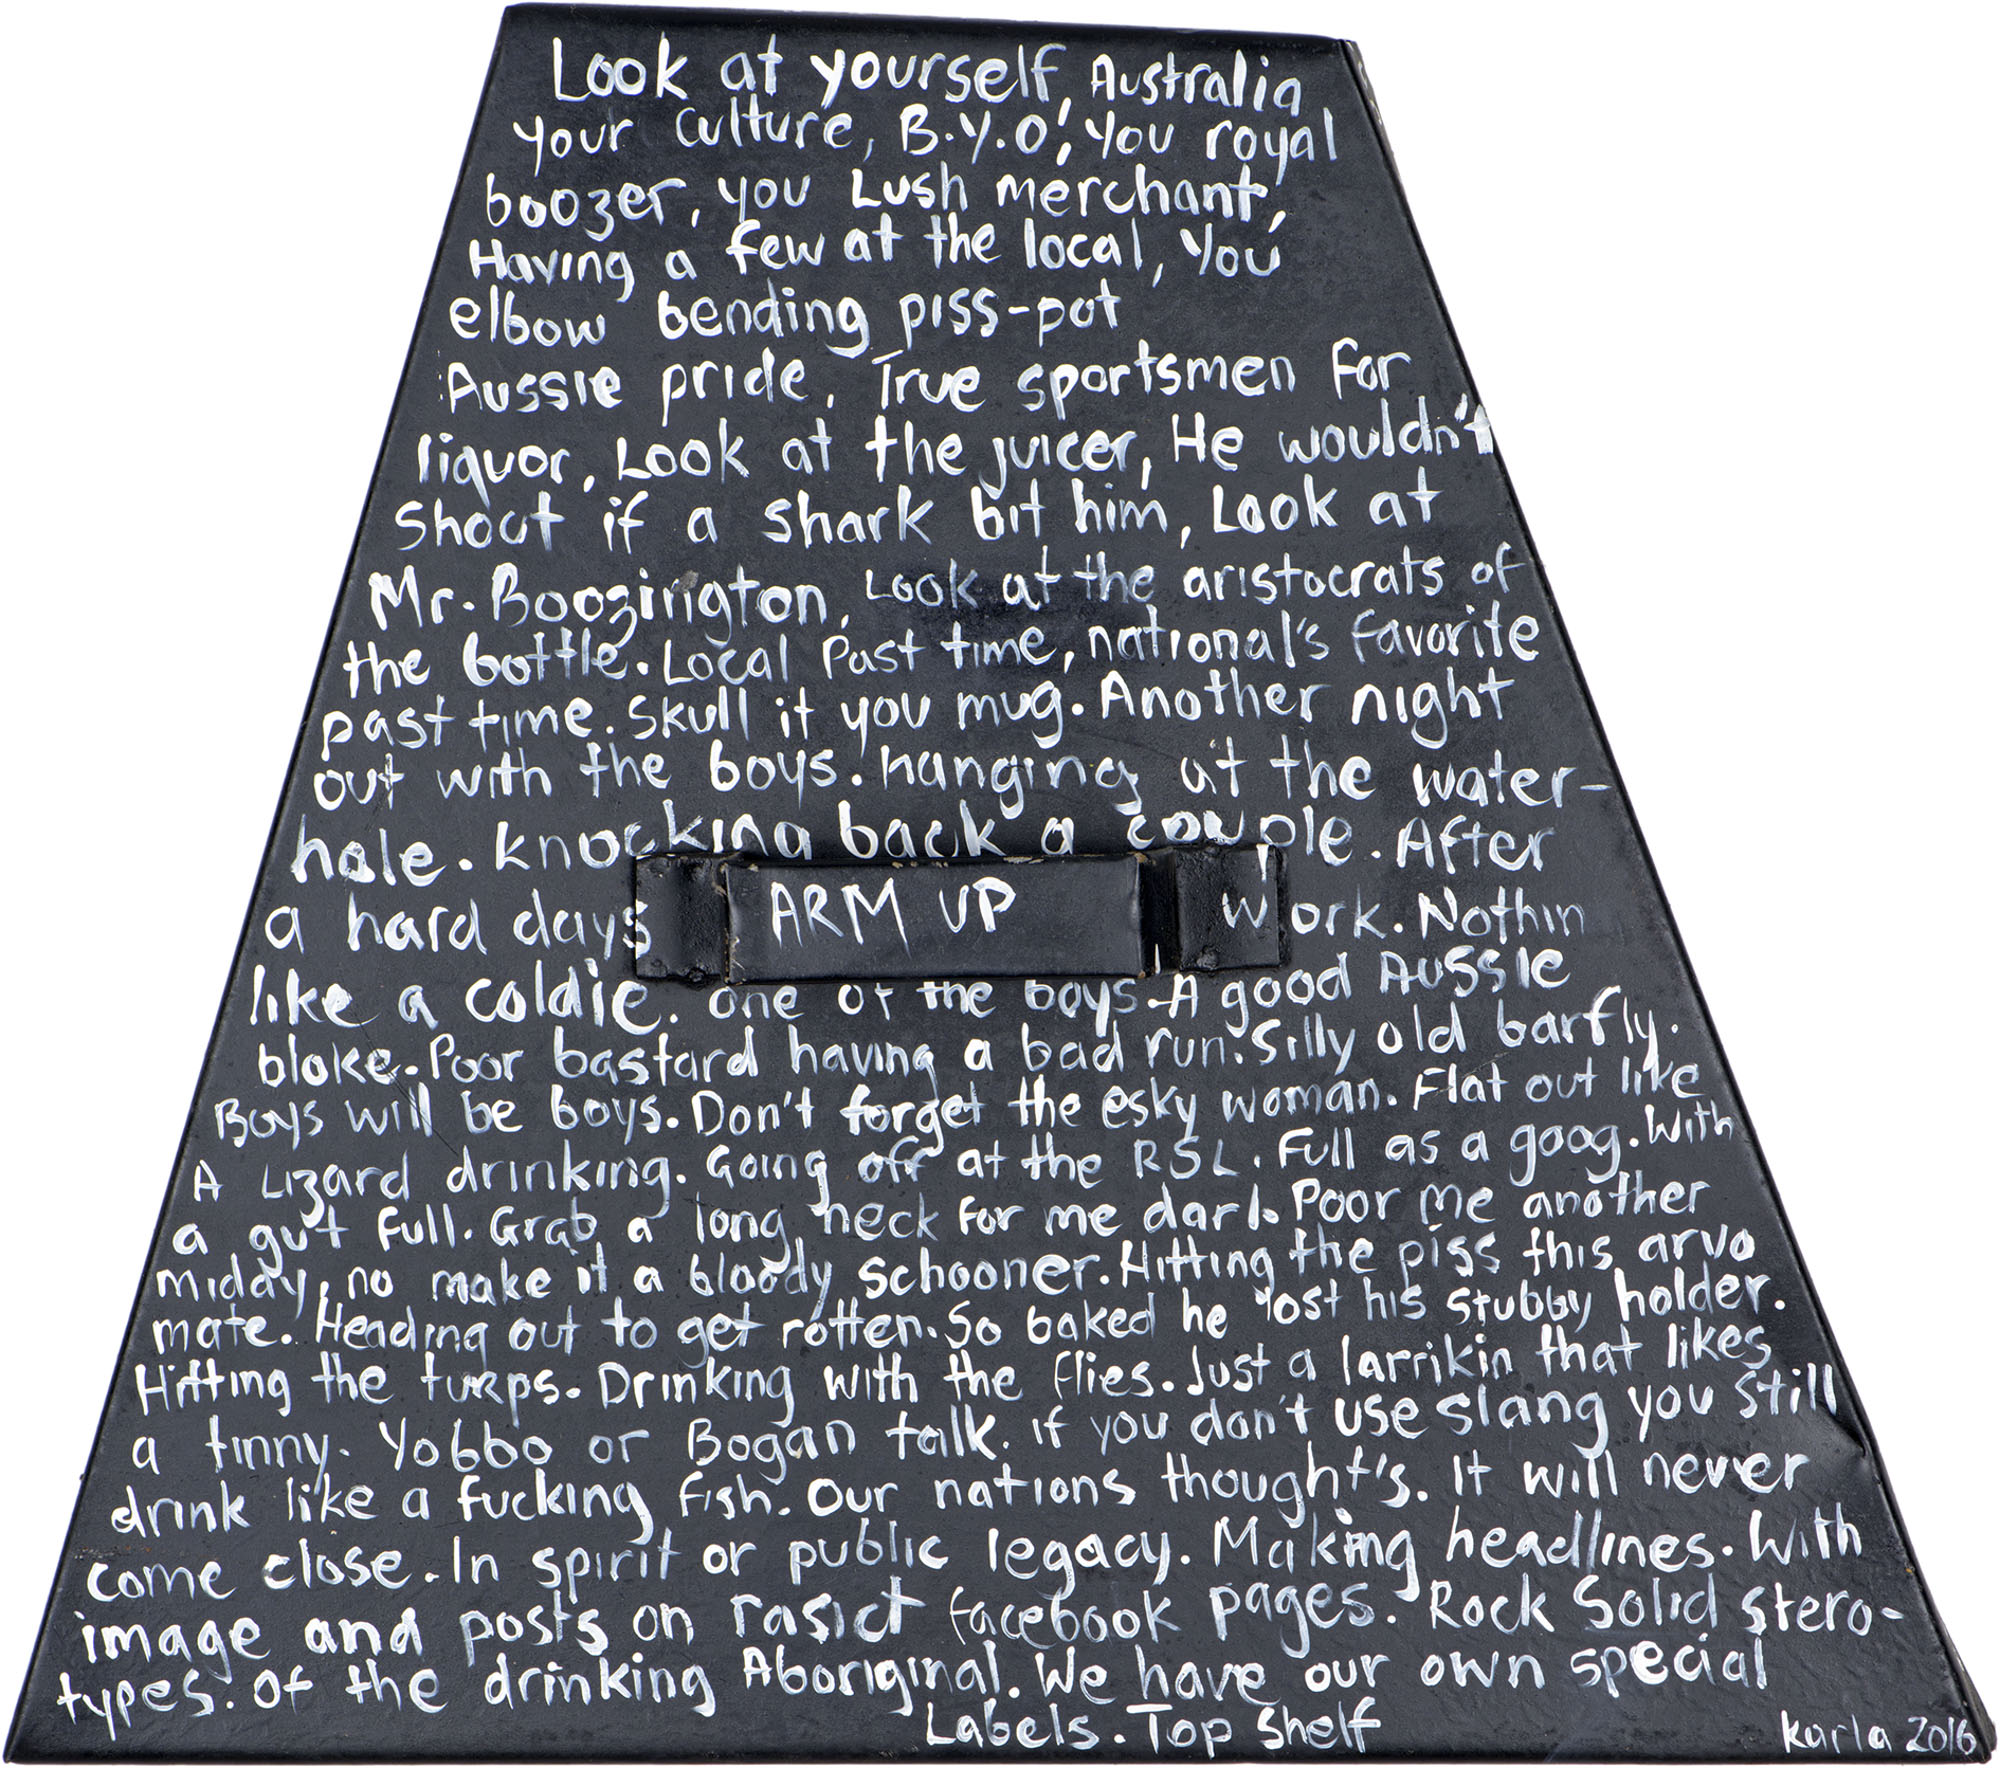 Look at yourself, Australia
your culture, B.Y.O', You royal
boozer, you Lush merchant,
Having a few at the local, You'
elbow bending piss-pot
Aussie pride, True sportsmen for
liquor, Look at the juicer, He wouldn't
shout if a shark bit him, Look at
Mr. Boozington, Look at the aristocrats of
the bottle. Local Past time, national's favorite
past time. Skull it you mug. Another night
out with the boys. hanging at the water-
hole. knocking back a couple. After
a hard days work. Nothin
ARM UP
like a coldie. one of the boys. A good Aussie
bloke. Poor bastard having a bad run. Silly old barfly.
Boys will be boys. Don't forget the esky woman. Flat out like
A Lizard drinking. Going off at the RSL. Full as a goog. With
a gut full. Grab a long neck for me darl. Poor me another
middy, no make it a bloody schooner. Hitting the piss this arvo
mate. Heading out to get rotten. So baked he lost his stubby holder.
Hitting the turps. Drinking with the flies. Just a larrikin that likes
a tinny. Yobbo or Bogan talk. if you don't use slang you still
drink like a fucking fish. Our nations thought's. It will never
come close. In spirit or public legacy. Making headlines. With
image and posts on rasict facebook pages. Rock Solid stero-
types. Of the drinking Aboriginal. We have our own special
Labels. Top Shelf
Karla 2016